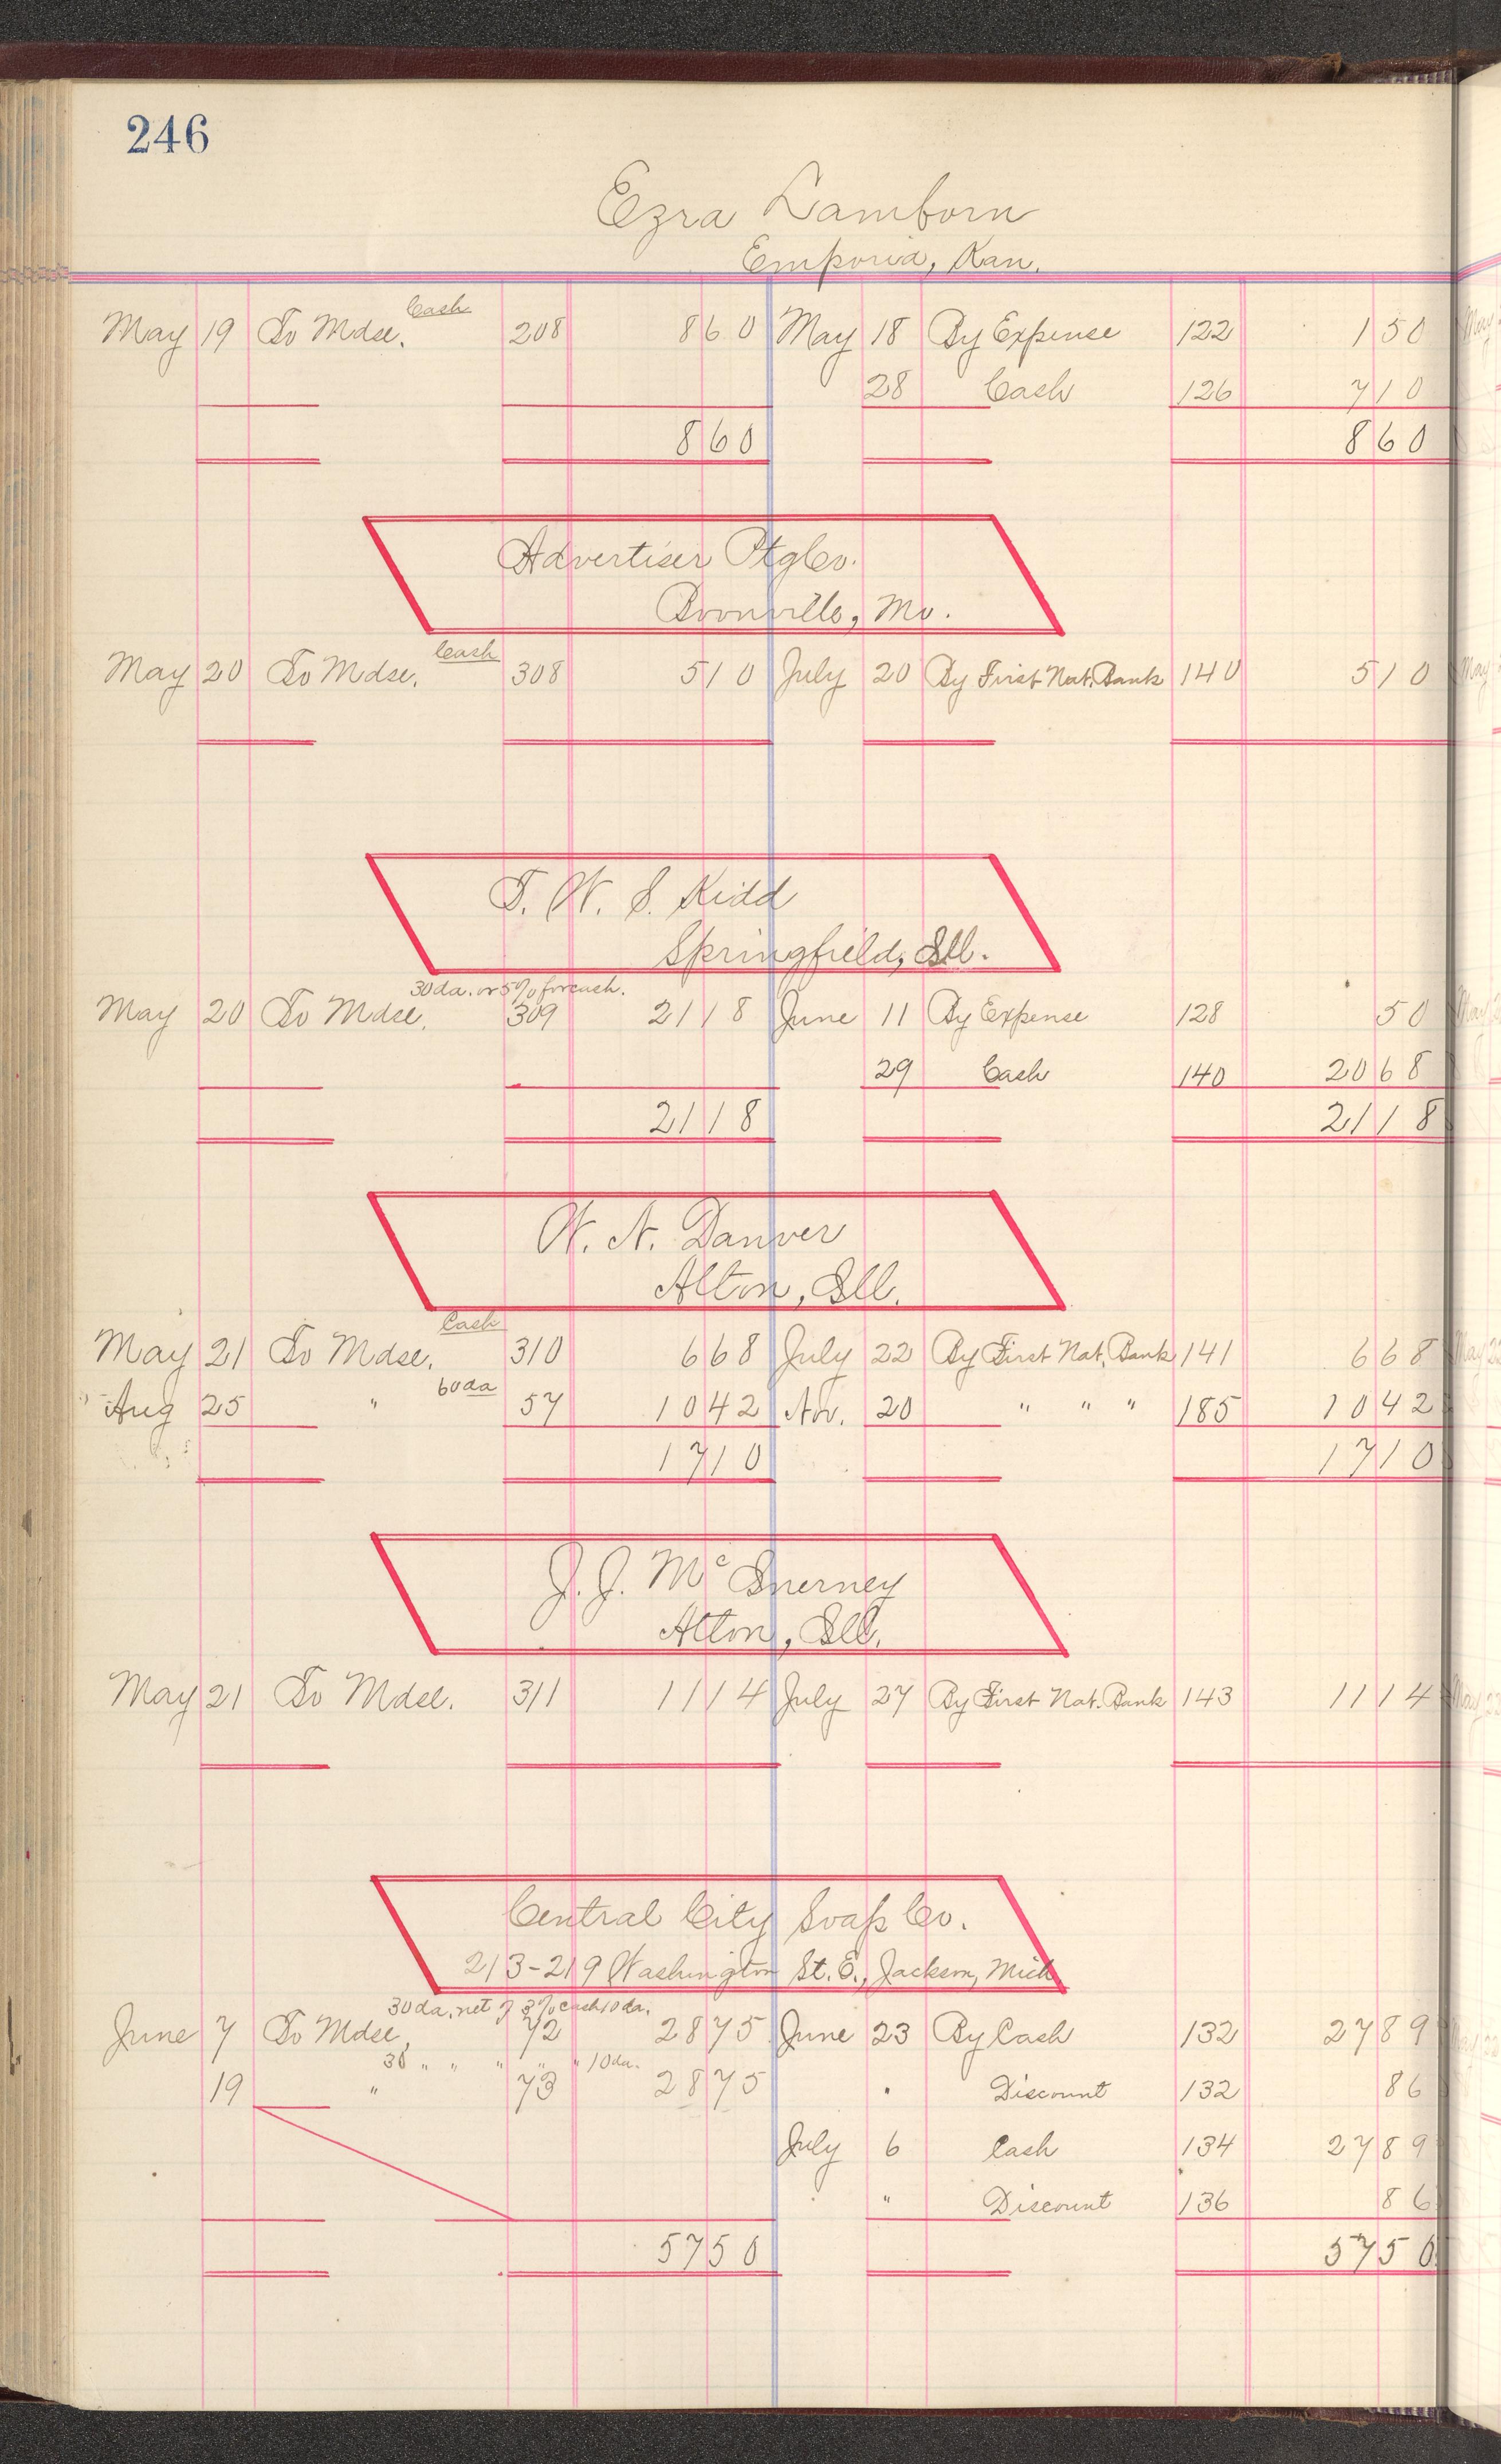 246
Ezra Lamborn
Emporia, Kan.
Cash
May 19 To Mdse. 208 8 60 May 18 By Expense 122 1 50
28 Cash 126 7 10
8 60 8 60
Advertiser Ptg Co.
Boonville, Mo.
Cash
May 20 To Mdse. 308 5 10 July 20 By First Nat. Bank 140 5 10
T. W. S. Kidd
Springfield, Ill.
30 da. or 5% for cash.
May 20 To Mdse. 309 21 18 June 11 By Expense 128 50
29 Cash 140 20 68
21 18 21 18
W. N. Danver
Alton, Ill.
Cash
May 21 To Mdse. 310 6 68 July 22 By First Nat. Bank 141 6 68
60 da
Aug 25 " 57 10 42 Nov. 20 " " " 185 10 42
17 10 17 10
J. J. McInerney
Alton, Ill.
May 21 To Mdse. 311 11 14 July 27 By First Nat. Bank 143 11 14
Central City Soap Co.
213-219 Washington St. E., Jackson, Mich
30 da. net 3% cash 10 da.
June 7 To Mdse. 72 28 75 June 23 By Cash 132 27 89
30 " " " " " 10 da.
19 " 73 28 75 " Discount 132 86
July 6 Cash 134 27 89
" Discount 136 86
57 50 57 50